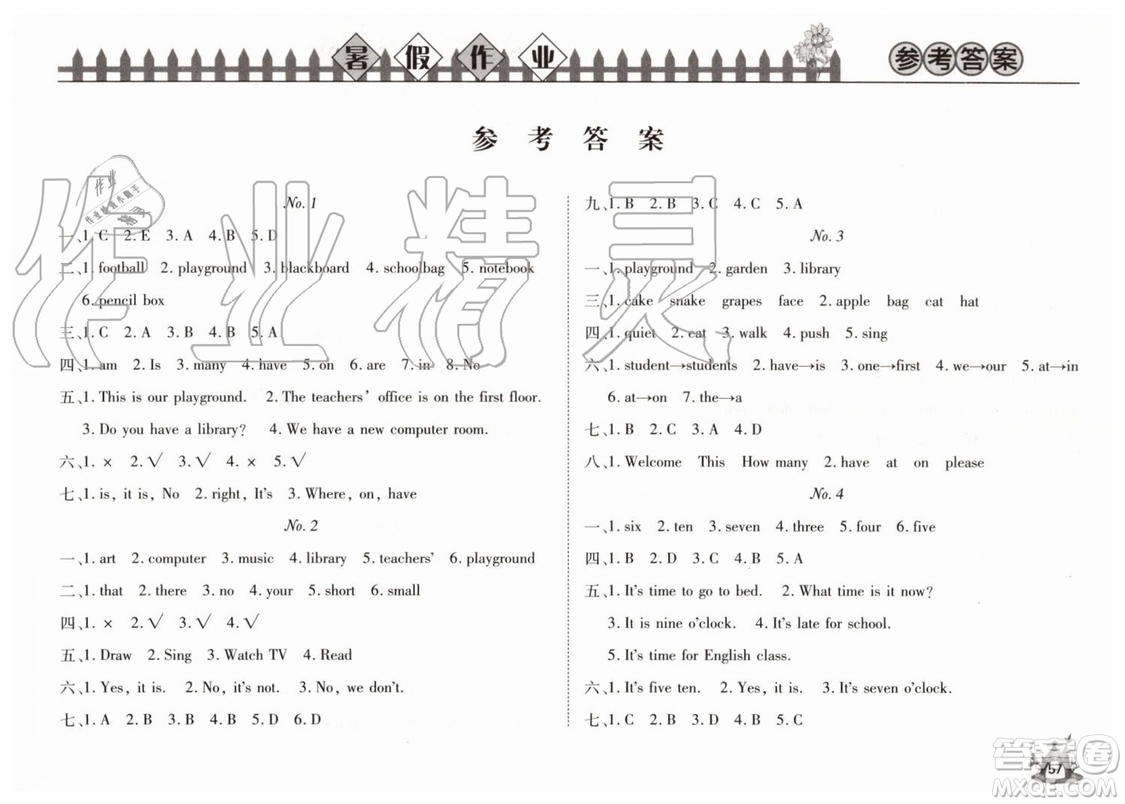 暑假作业
参考答案
参考答案
No. 1
一、1. C 2. E 3. A 4. B 5. D
二、1. football 2. playground 3. blackboard 4. schoolbag 5. notebook
6. pencil box
三、1. C 2. A 3. B 4. B 5. A
四、1. am 2. Is 3. many 4. have 5. on 6. are 7. in 8. No
五、1. This is our playground. 2. The teachers' office is on the first floor.
3. Do you have a library? 4. We have a new computer room.
六、1. × 2. √ 3. √ 4. × 5. √
七、1. is, it is, No 2. right, It's 3. Where, on, have
No. 2
一、1. art 2. computer 3. music 4. library 5. teachers' 6. playground
二、1. that 2. there 3. no 4. your 5. short 6. small
四、1. × 2. √ 3. √ 4. √
五、1. Draw 2. Sing 3. Watch TV 4. Read
六、1. Yes, it is. 2. No, it's not. 3. No, we don't.
七、1. A 2. B 3. B 4. D 5. D 6. D
九、1. B 2. B 3. C 4. C 5. A
No. 3
一、1. playground 2. garden 3. library
三、1. cake snake grapes face 2. apple bag cat hat
四、1. quiet 2. eat 3. walk 4. push 5. sing
六、1. student→students 2. have→is 3. one→first 4. we→our 5. at→in
6. at→on 7. the→a
七、1. B 2. C 3. A 4. D
八、1. Welcome This How many 2. have at on please
No. 4
一、1. six 2. ten 3. seven 4. three 5. four 6. five
四、1. B 2. D 3. C 4. B 5. A
五、1. It's time to go to bed. 2. What time is it now?
3. It is nine o'clock. 4. It's late for school.
5. It's time for English class.
六、1. It's five ten. 2. Yes, it is. 3. It's seven o'clock.
七、1. C 2. B 3. D 4. B 5. C
57
作业精灵
答案圈
MXQE.COM